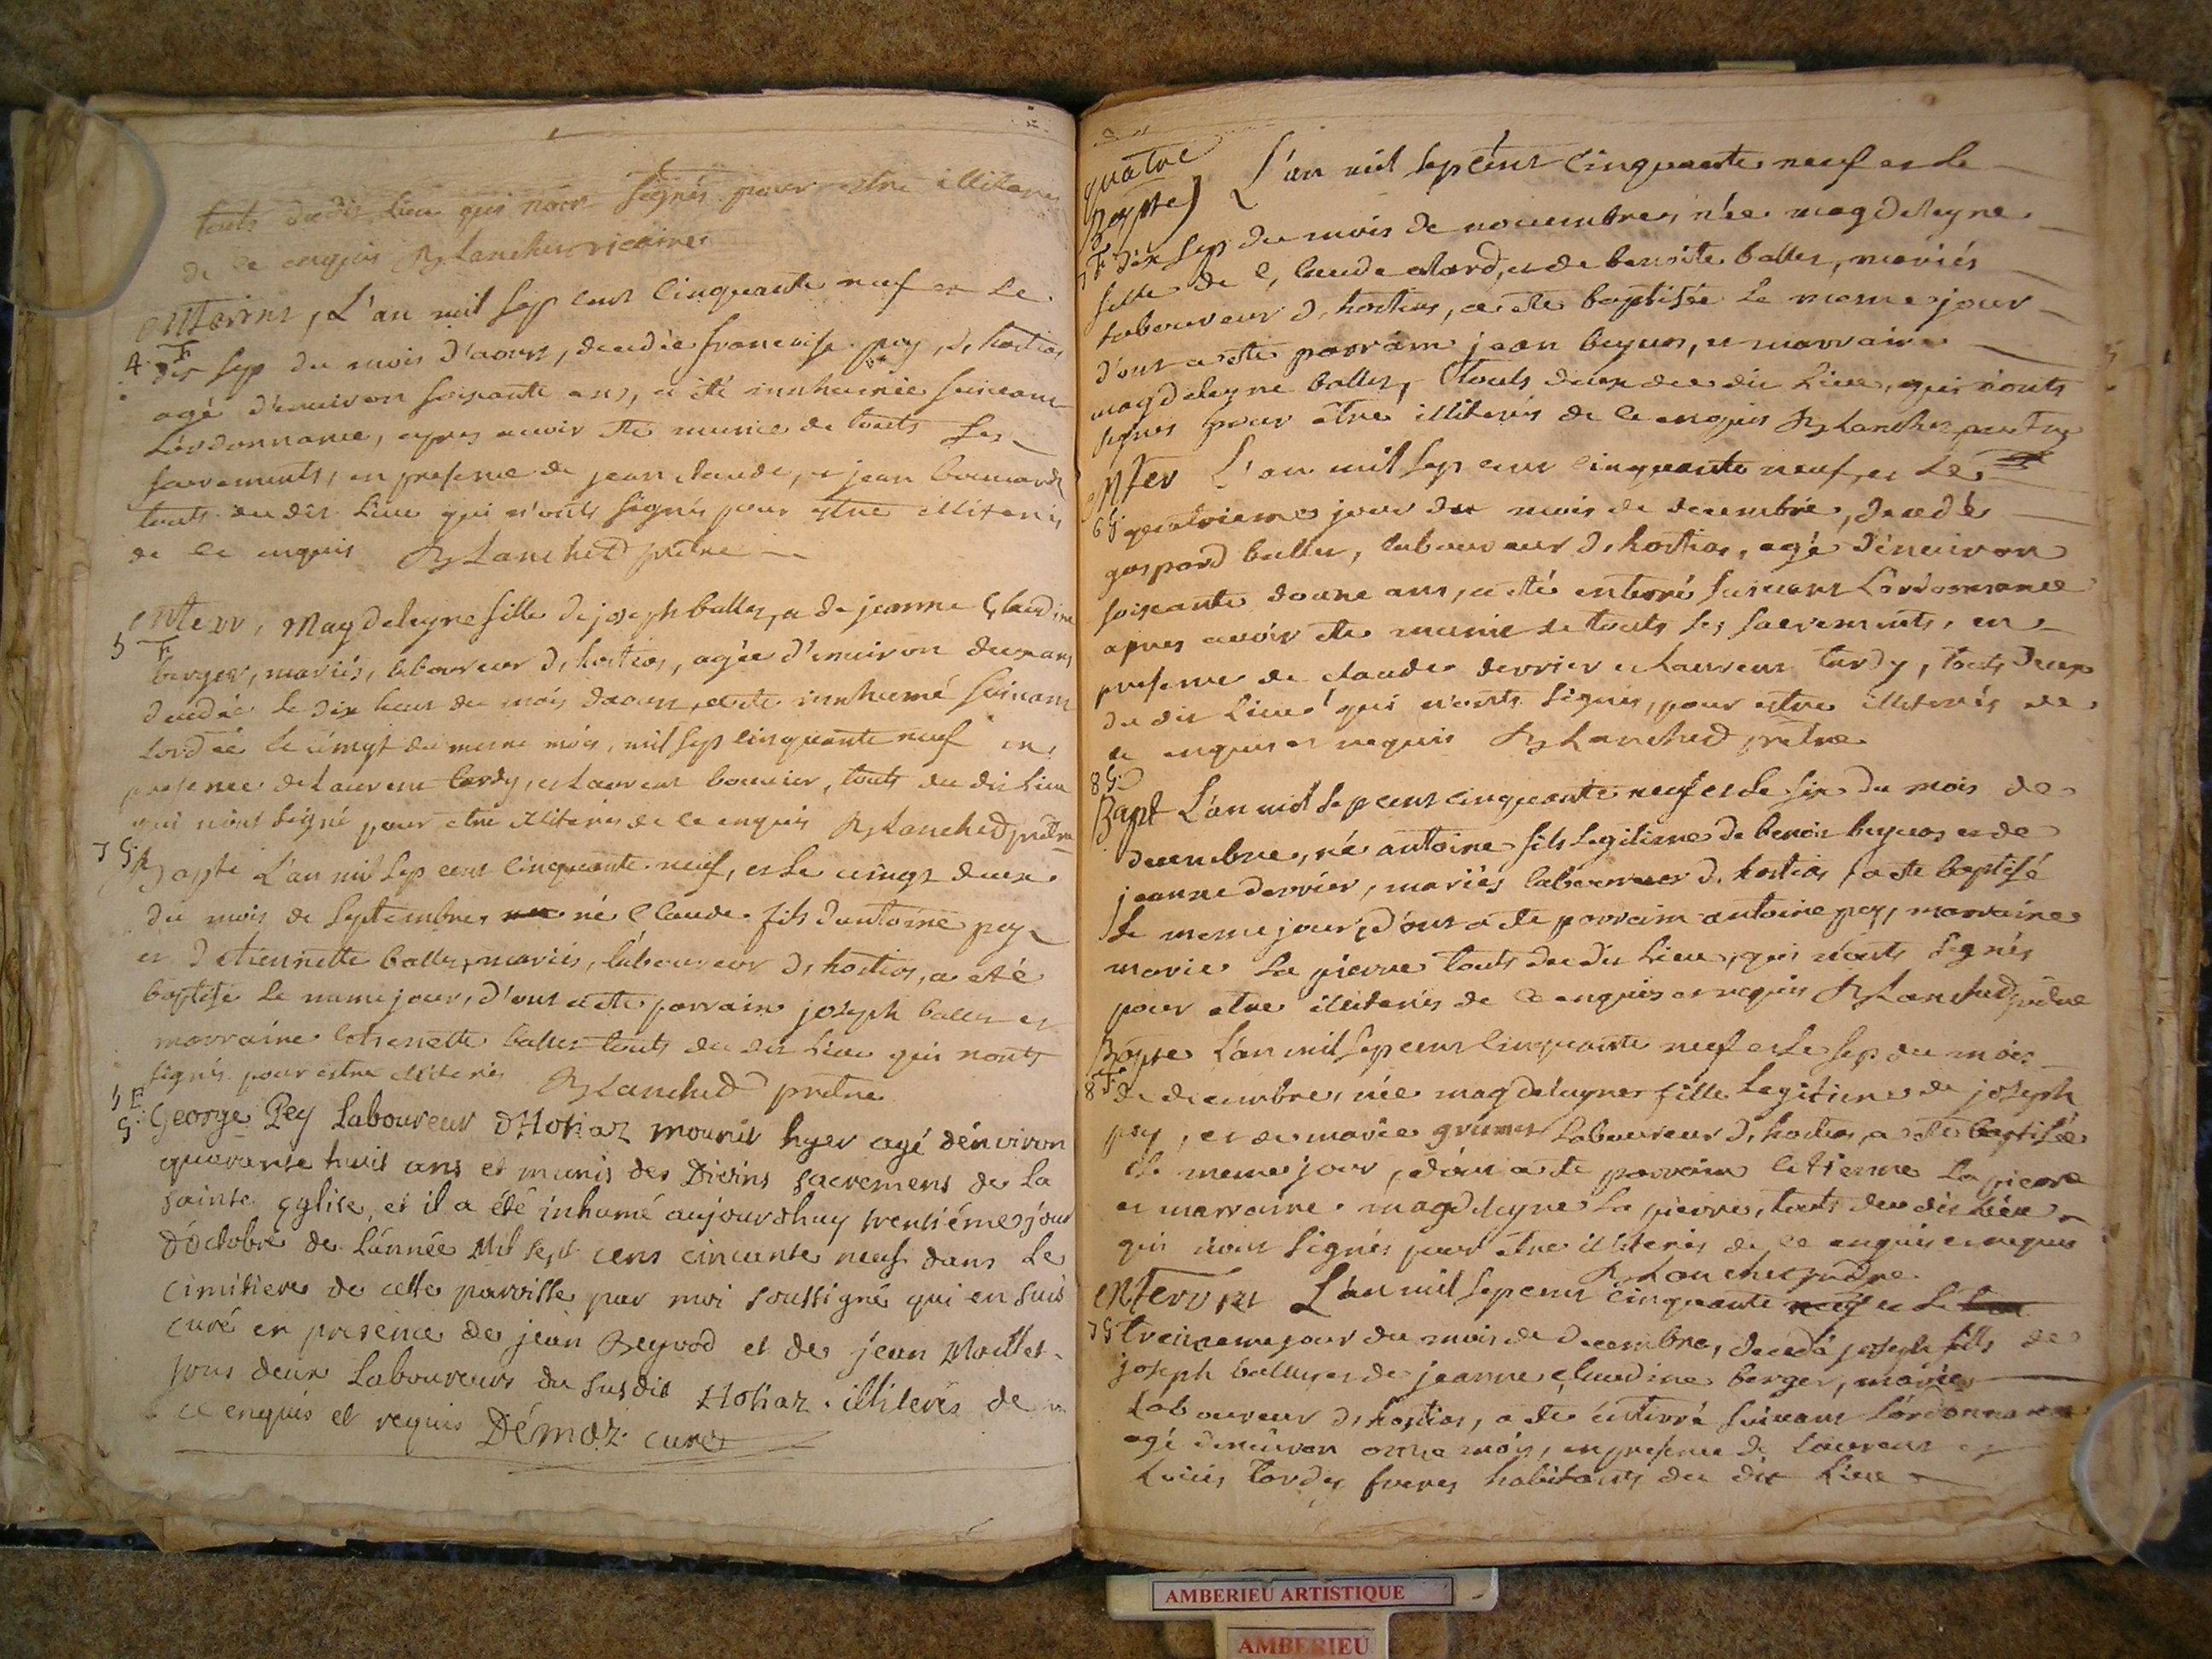 touts du dit Lieu qui n'ont Signés pour estre illiteres
de ce enquis Blanchet vicaire
enterrns, L'an mil Sep cent Cinquante neuf et Le
4 F dix Sep du mois d'aoust, decedée francoise pey, d. hostias
agé d'environ soixante ans, a été innhumée suivant
L'ordonnance, apres avoir été munie de touts Les
sacrements, en presence de jean claude, et jean
touts du dit Lieu qui n'onts signés pour estre illiterés
de ce enquis Blanchet prêtre
enterr, Magdeleyne fille de joseph ballet, et de jeanne Claudine
5 F berger, mariés, laboureur d. hostias, agée d'environ deux ans
decedée le dix huit du mois daoust, a ete innhumé suivant
Lordce le vingt du meme mois, mil sep cinquante neuf en
presence de Laurent tardy, et Laurent bouvier, touts du dit Lieu
qui n'ont signé pour etre illiterés de ce enquis Blanchet prêtre
7 G Bapte L'an mil Sep cent Cinquante neuf, et Le vingt deux
du mois de Septembre, né Claude fils d'antoine pey
et d etiennette ballet, mariés, laboureur d. hostias, a eté
baptisé le meme jour, d'ont a ete parrain joseph ballet et
marraine etienette ballet touts du dit Lieu qui nonts
signés pour estre illiterés Blanchet prêtre
5 F
G George Pey Laboureur d'Hostiaz mourut hyer agé d'environ
quarante huit ans et munis des Divins sacremens de La
sainte Eglise, et il a été inhumé aujourdhuy trentiéme jour
d'octobre de L'année Mil sept cens cincante neuf dans Le
cimitiere de cette paroisse par moi soussigné qui en suis
curé en presence de jean Reyvod et de jean Maillet
tous deux Laboureurs du susdit Hostiaz illiterés de
ce enquis et requis Démoz curé
quatre
Bapte) L'an mil Sep cent Cinquante neuf et Le
7 F dix Sep du mois de novembre, née magdeleyne
fille de Claude, et de benoite ballet, mariés
laboureur d. hostias, a ete baptisée Le meme jour
d'ont a ete parrain jean beyvos, et marraine
magdeleyne ballet, touts deux du dit Lieu, qui n'onts
signés pour être illiterés de ce enquis Blanchet prêtre
enter L'an mil Sep cent Cinquante neuf, et Le
6 G quatrieme jour du mois de decembre, decedé
gaspard ballet, laboureur d. hostias, agé d'environ
soixante douze ans, a eté enterré suivant L'ordonnance
apres avoir ete munie de touts Les sacrements, en
presence de claude derrier et Laurent tardy, touts deux
du dit Lieu qui n'onts signés, pour estre illiterés de
ce enquis et requis Blanchet prêtre
8 G
Bapt L'an mil Sep cent cinquante neuf et Le six du mois de
decembre, né antoine fils Legitime de benoit beyvos et de
jeanne derrier, mariés laboureur d. hostias a ete baptisé
Le meme jour, d'ont a ete parrain antoine pey, marraine
marie La pierre touts du dit Lieu, qui n'onts signés
pour etre illiterés de ce enquis et requis Blanchet prêtre
Bapte L'an mil Sep cent Cinquante neuf et Le Sep du mois
8 F de decembre, née magdeleyne fille Legitime de joseph
pey, et de marie laboureur d. hostias, a ete baptisée
Le meme jour, d'ont a ete parrain etienne La pierre
et marraine magdeleyne La pierre, touts du dit Lieu
qui n'ont signés pour etre illiterés de ce enquis et requis
Blanchet prêtre
enterrnt L'an mil Sep cent Cinquante neuf et Le
7 G treizieme jour du mois de decembre, decedé joseph fils de
joseph ballet, et de jeanne claudine berger, mariés
Laboureur d. hostias, a ete enterré suivant L'ordonnance
agé d'environ onze mois, en presence de Laurent et
Louis tardy freres habitants du dit Lieu
AMBERIEU ARTISTIQUE
AMBERIEU